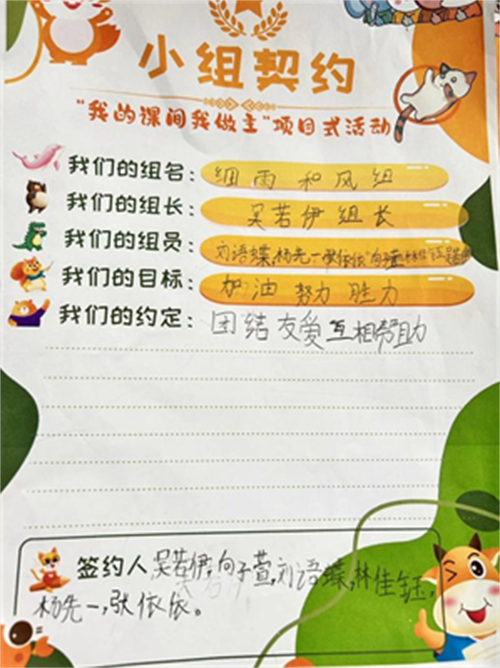 小组契约
"我的课间我做主"项目式活动
我们的组名：细雨和风组
我们的组长：吴若伊组长
我们的组员：刘语蝶,杨先一,张依依,向子萱,林佳钰
我们的目标：加油努力胜力
我们的约定：团结友爱互相帮助
签约人吴若伊,向子萱,刘语蝶,林佳钰,
杨先一,张依依。